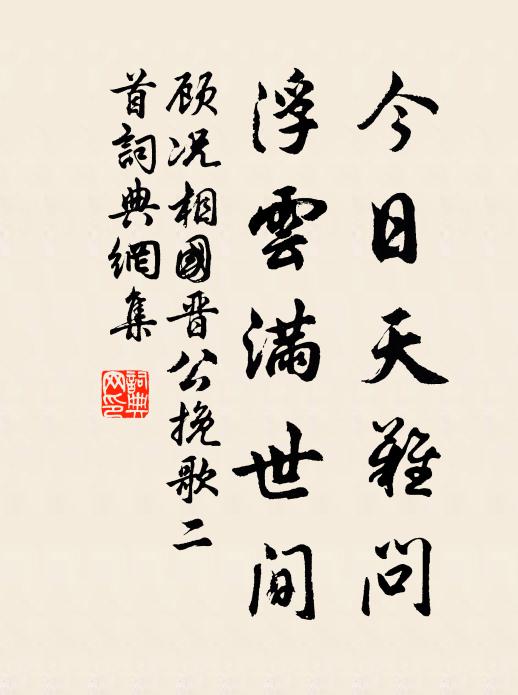 今日天難問
浮雲滿世間
顾况相國晋公挽歌二
首詞典網集
詞典
网印